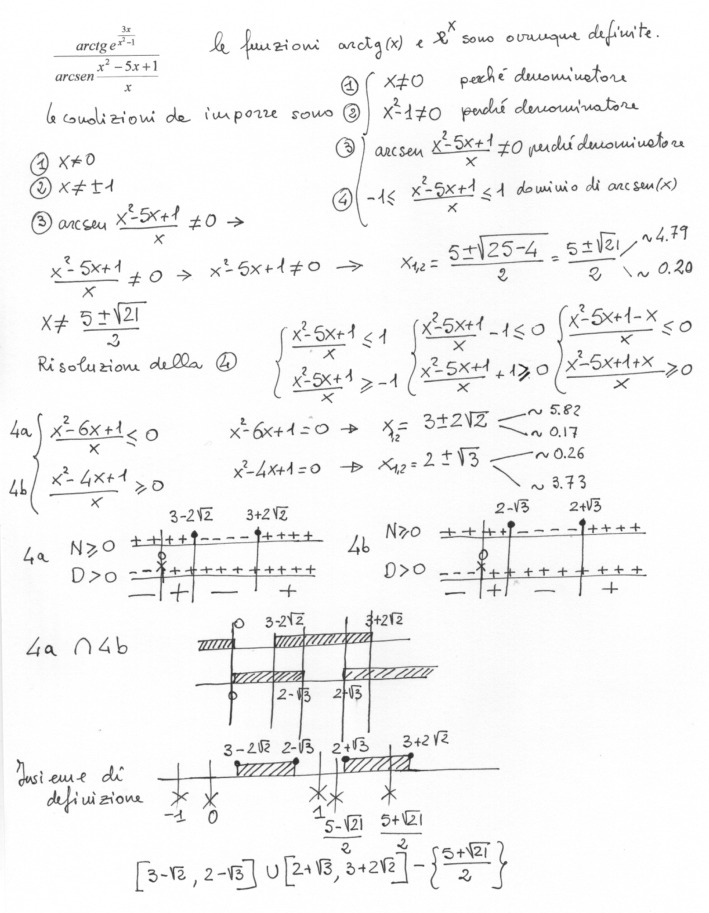 arctg e^(3x/(x²-1)) / arcsen (x²-5x+1)/x
le funzioni arctg(x) e e^x sono ovunque definite.
le condizioni da imporre sono
① x≠0 perché denominatore
② x²-1≠0 perché denominatore
③ arcsen (x²-5x+1)/x ≠0 perché denominatore
④ -1≤ (x²-5x+1)/x ≤1 dominio di arcsen(x)
① x≠0
② x≠±1
③ arcsen (x²-5x+1)/x ≠0 →
(x²-5x+1)/x ≠0 → x²-5x+1≠0 → x₁,₂= (5±√(25-4))/2 = (5±√21)/2 ~4.79 ~0.20
x≠ (5±√21)/2
Risoluzione della ④
{ (x²-5x+1)/x ≤1 { (x²-5x+1)/x -1≤0 { (x²-5x+1-x)/x ≤0
(x²-5x+1)/x ≥-1 (x²-5x+1)/x +1≥0 (x²-5x+1+x)/x ≥0
4a { (x²-6x+1)/x ≤0 x²-6x+1=0 → x₁,₂= 3±2√2 ~5.82 ~0.17
4b (x²-4x+1)/x ≥0 x²-4x+1=0 → x₁,₂= 2±√3 ~0.26 ~3.73
3-2√2 3+2√2
4a N≥0 ++++----++++
D>0 --+++++++++++
- + - +
2-√3 2+√3
4b N≥0 ++++----++++
D>0 ---+++++++++++
- + - +
4a ∩ 4b
0 3-2√2 3+2√2
0 2-√3 2+√3
Insieme di definizione
3-2√2 2-√3 2+√3 3+2√2
-1 0 1 (5-√21)/2 (5+√21)/2
[3-√2, 2-√3] ∪ [2+√3, 3+2√2] - {(5+√21)/2}